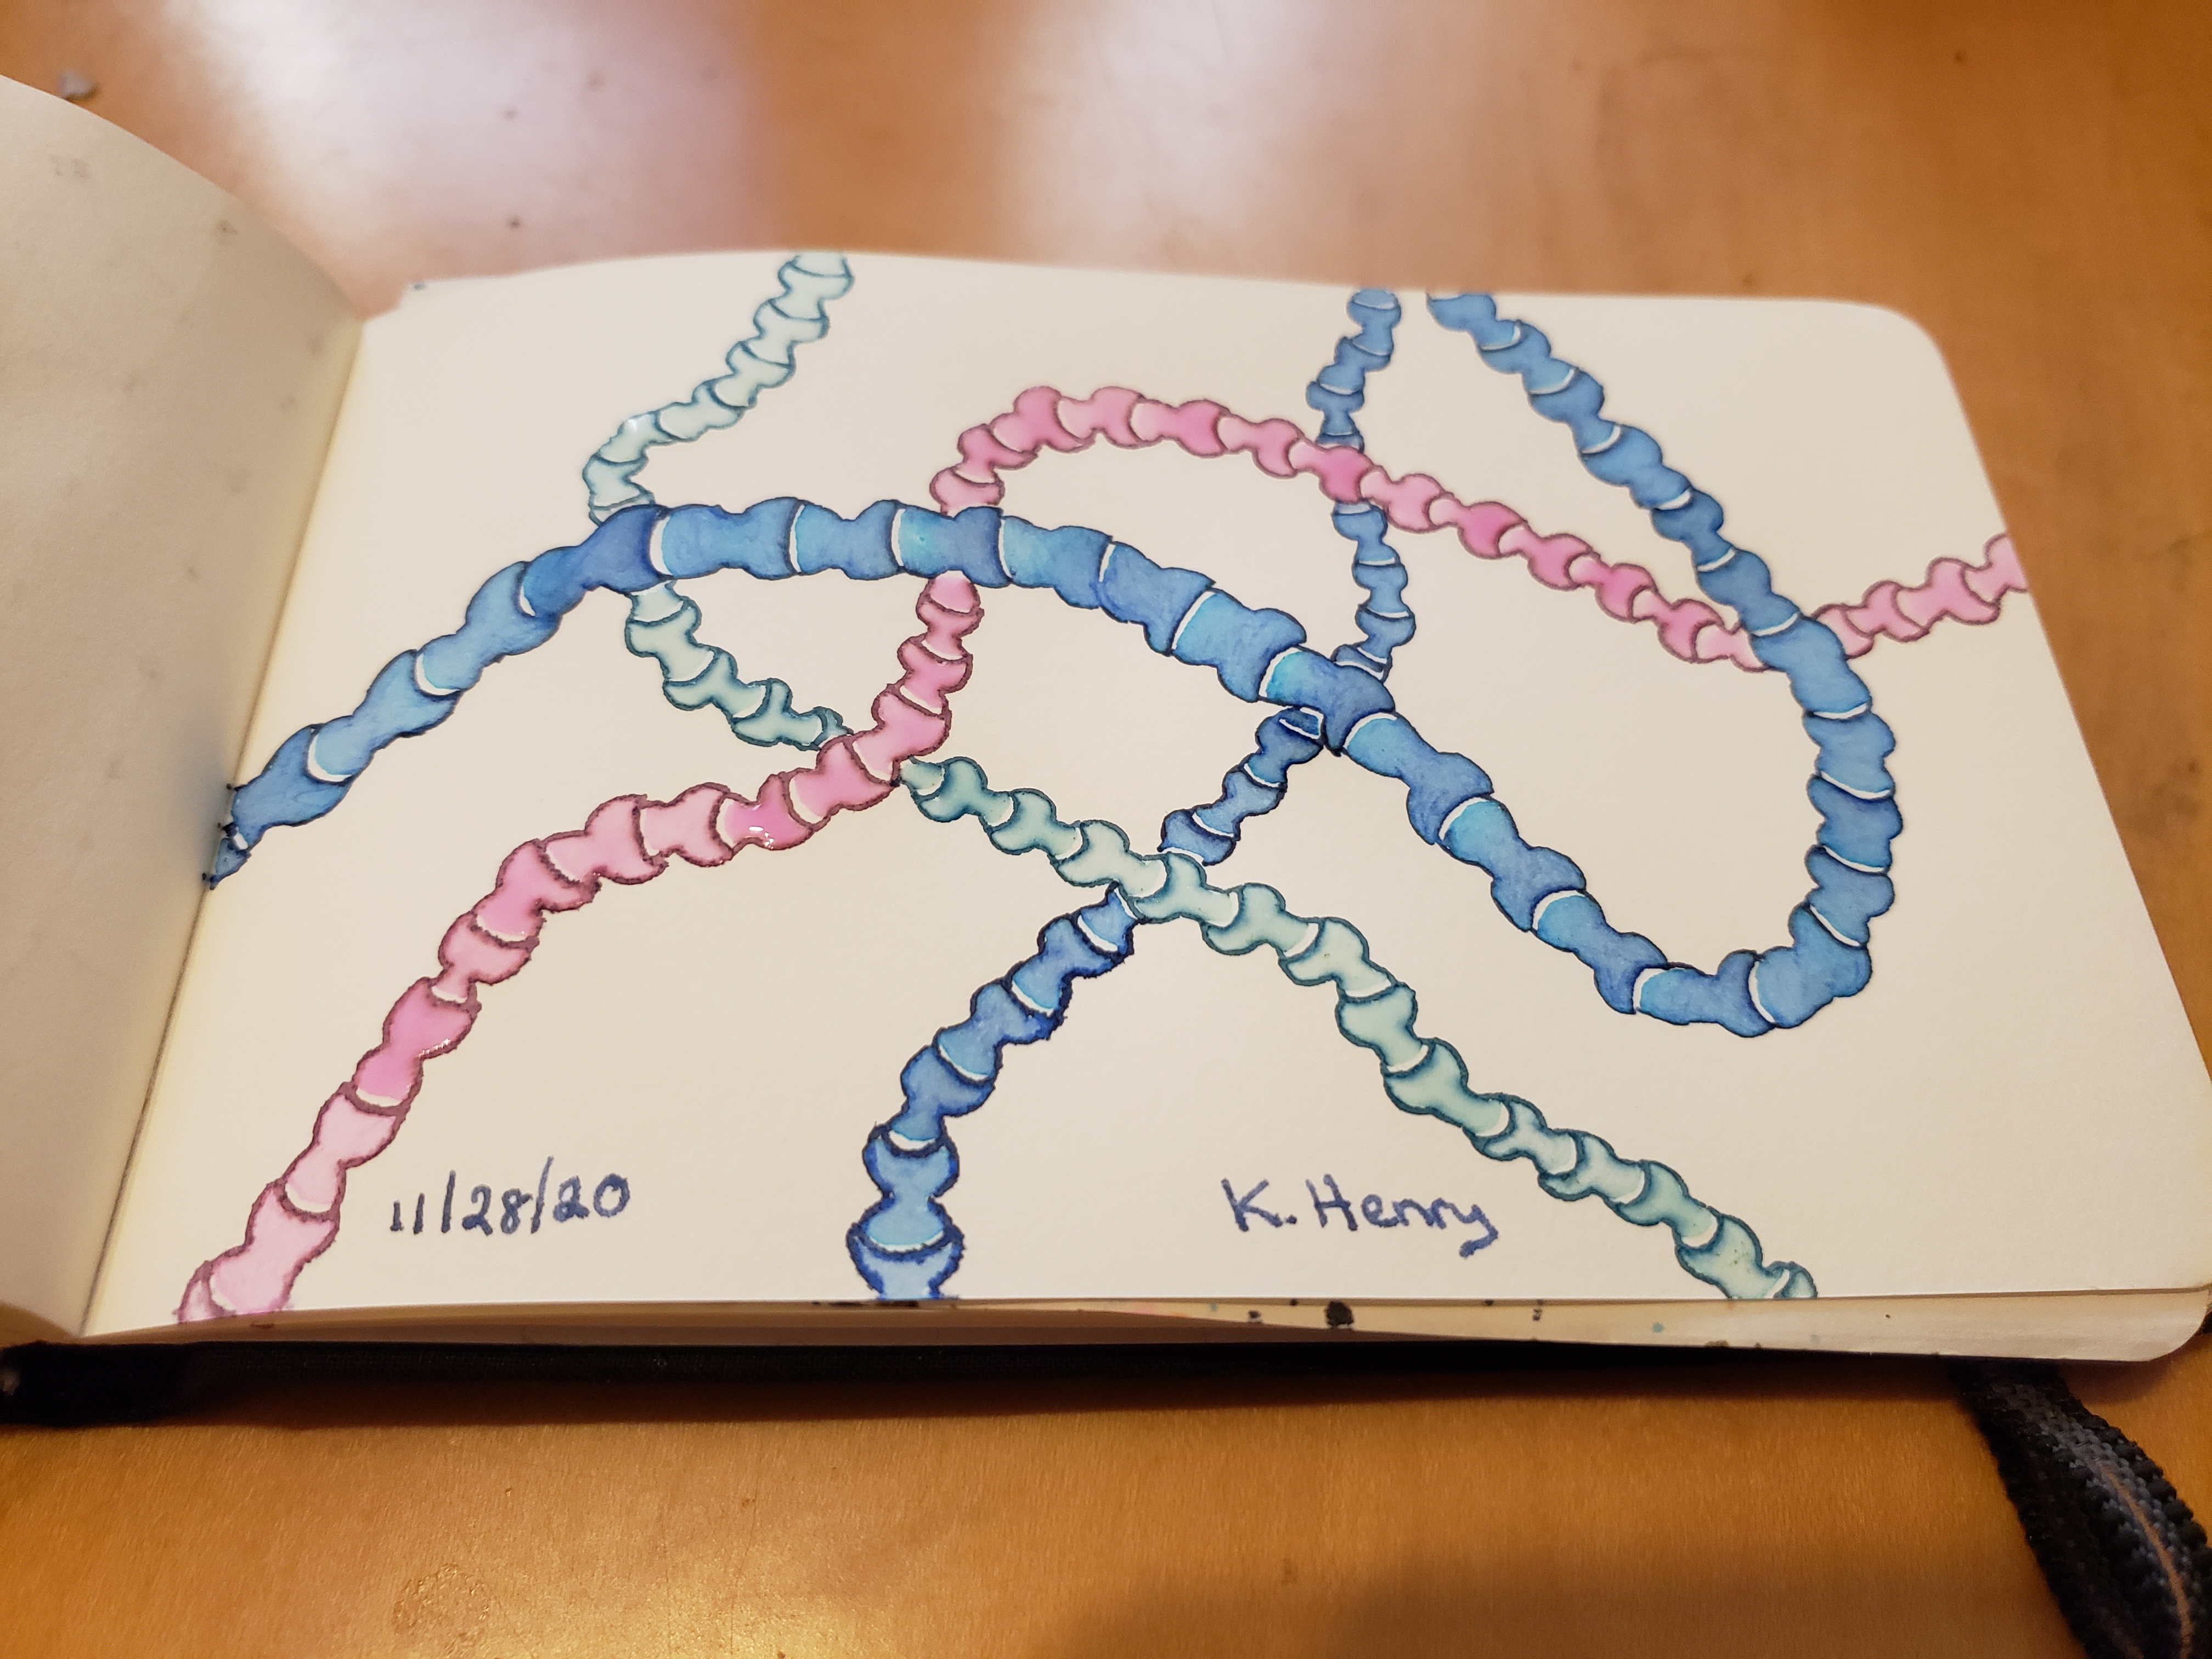 11/28/20
K. Henry